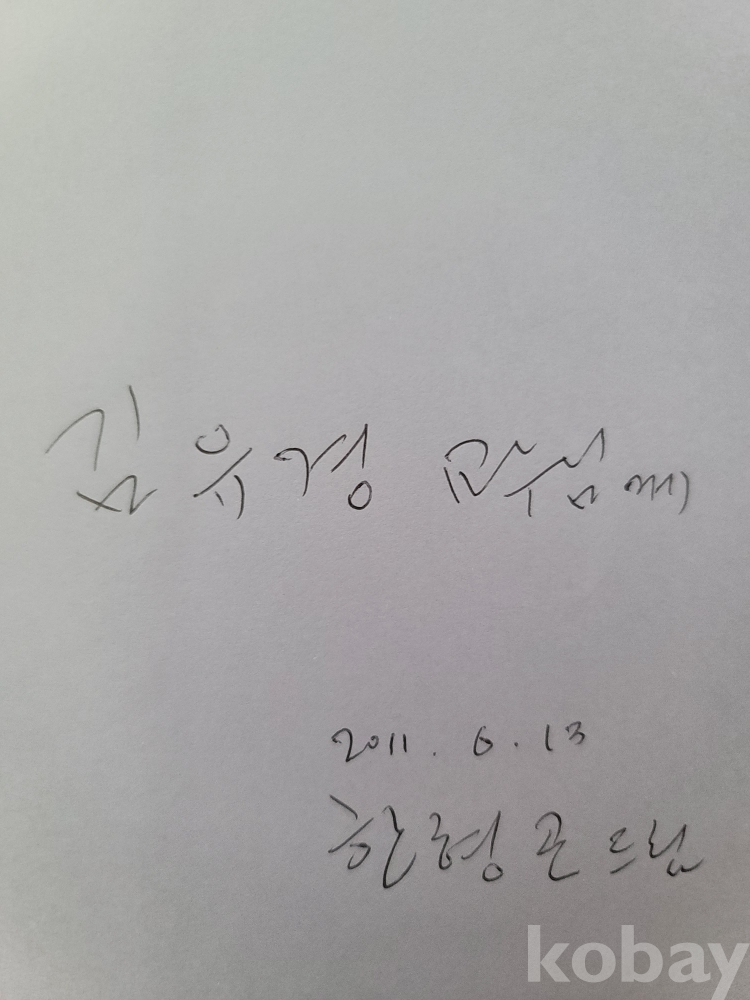 김유경 교수님께
2011. 6. 13
한형곤 드림
kobay